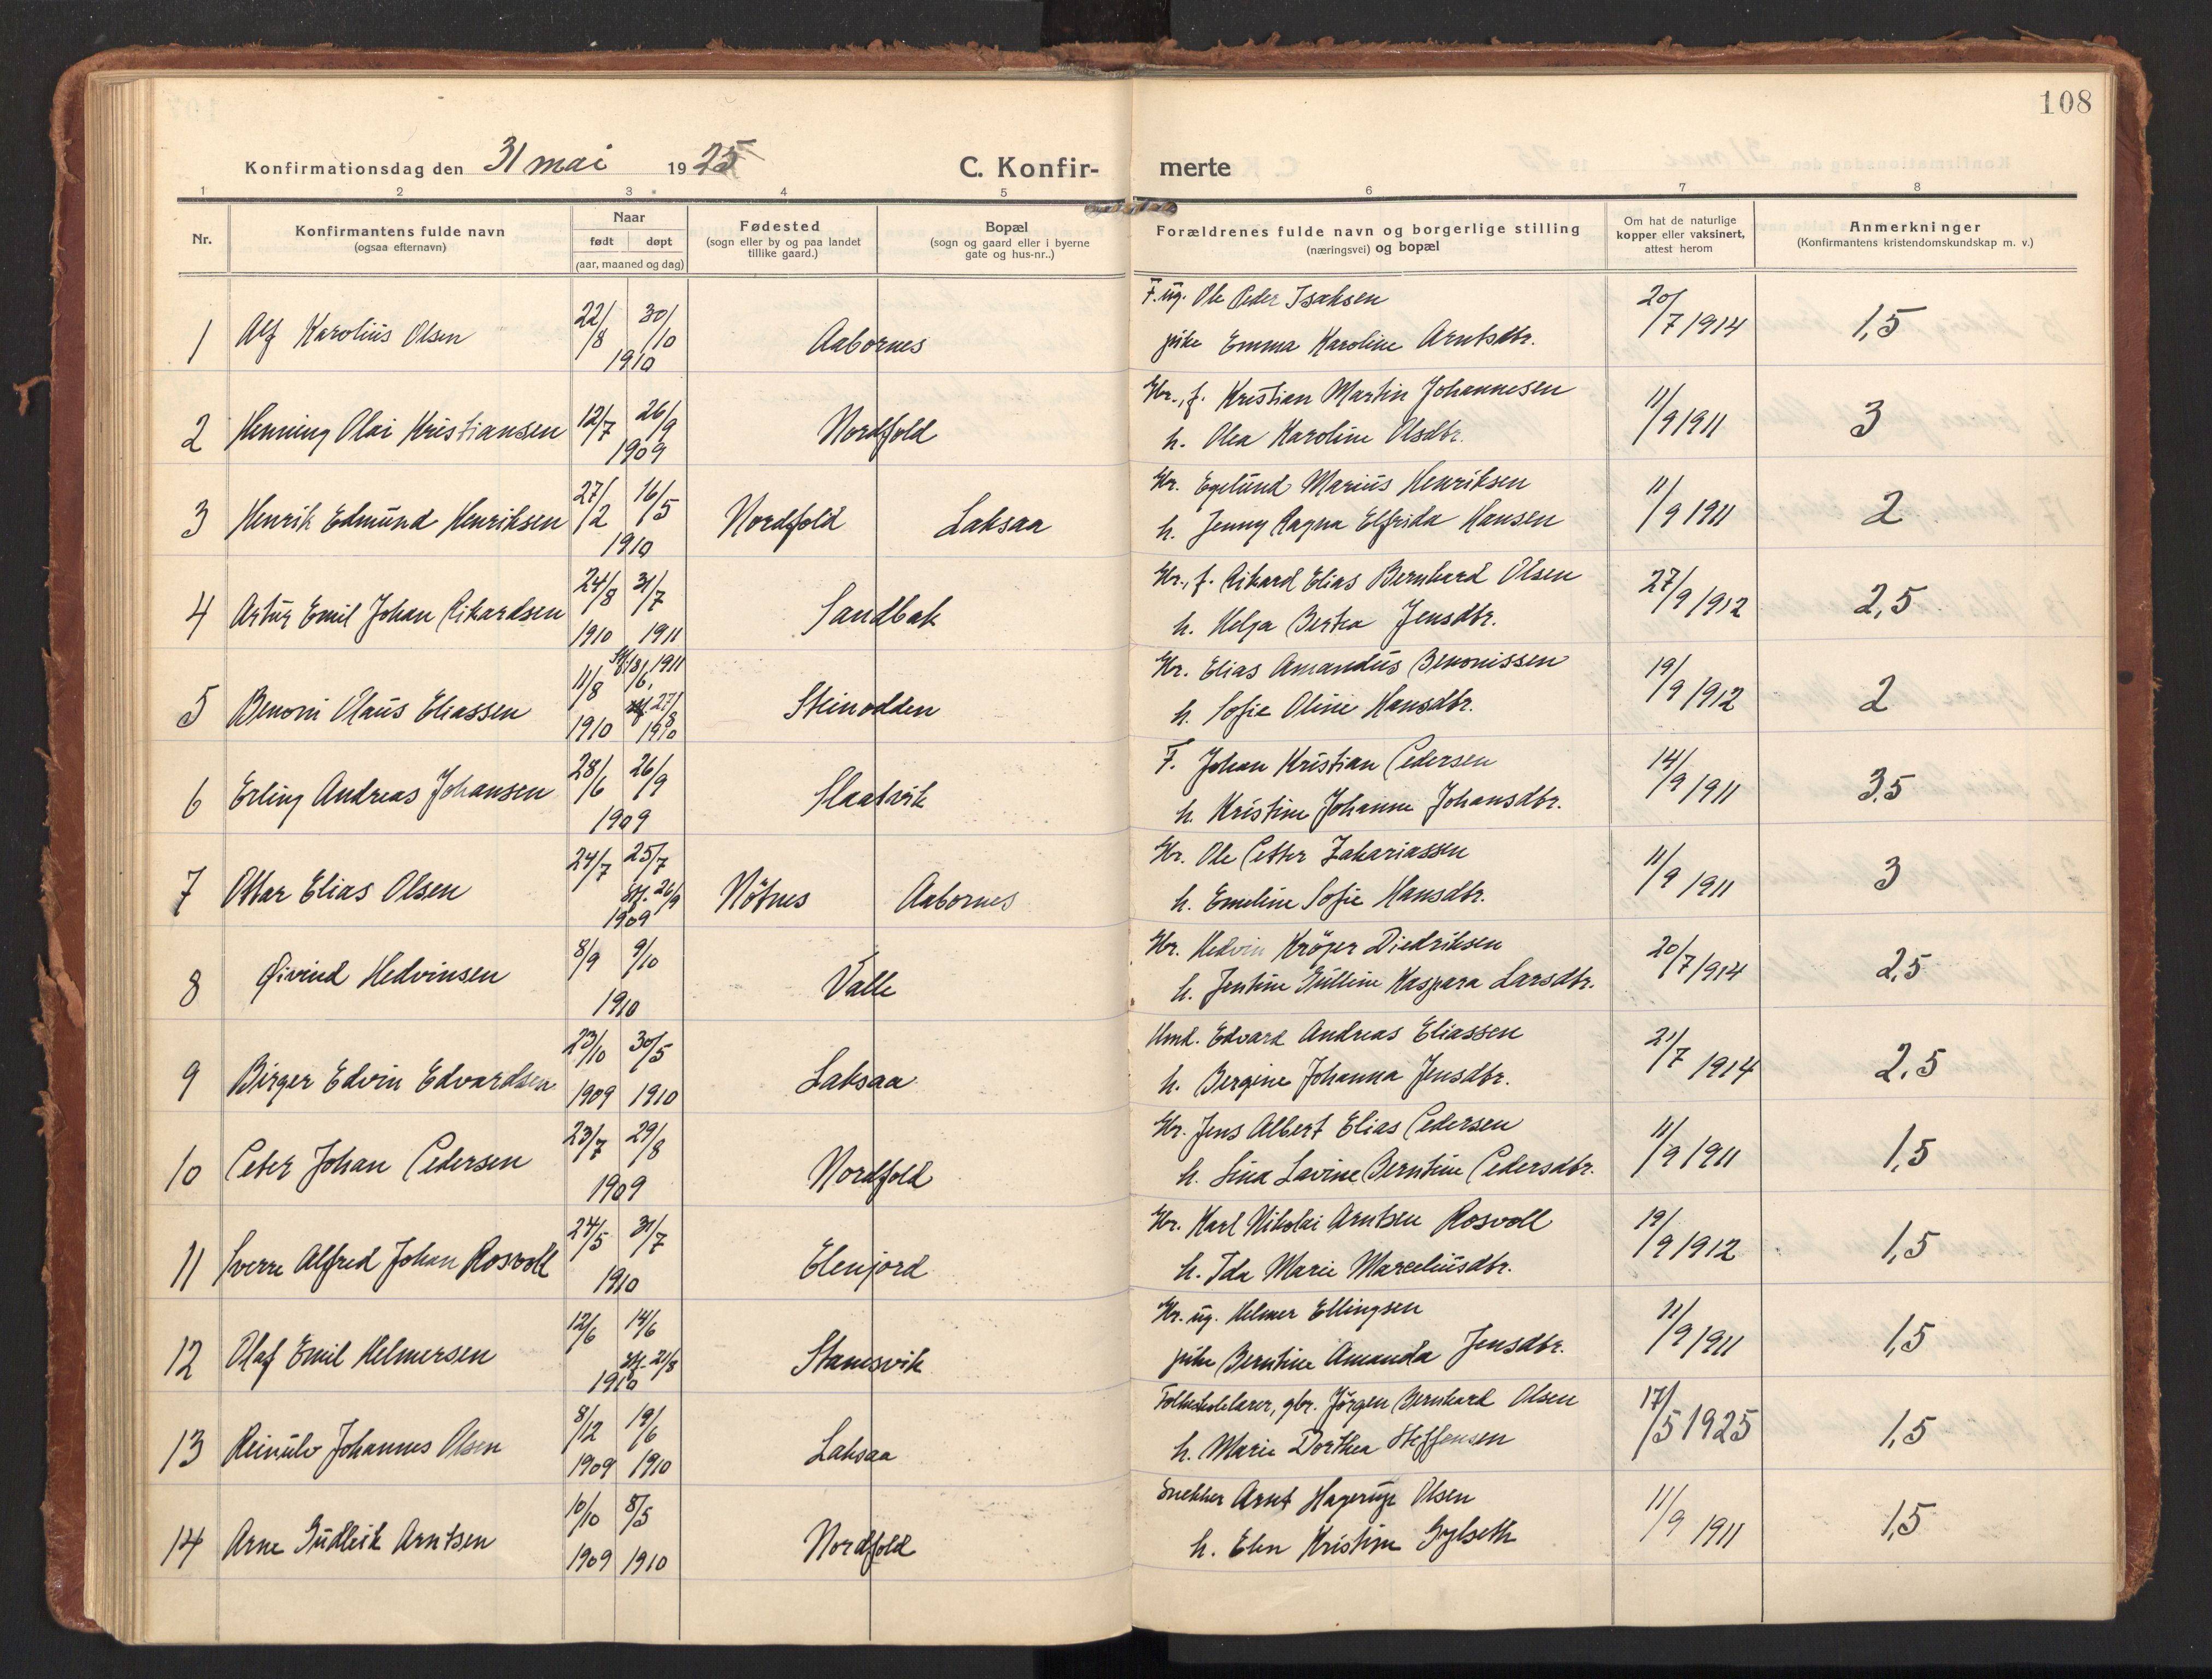 108
Konfirmationsdag den 31 mai 1925 C. Konfir- merte
1 2 3 4 5 6 7 8
Nr. Konfirmantens fulde navn (ogsaa efternavn) Naar født døpt (aar, maaned og dag) Fødested (sogn eller by og paa landet tillike gaard.) Bopæl (sogn og gaard eller i byerne gate og hus-nr..) Forældrenes fulde navn og borgerlige stilling (næringsvei) og bopæl Om hat de naturlige kopper eller vaksinert, attest herom Anmerkninger (Konfirmantens kristendomskundskap m. v.)
22/8 30/10 F. ug. Ole Peder Isaksen 20/7 1914
1 Alf Karolius Olsen Aabornes pike Emma Karoline Arntsdtr. 1,5
1910
12/7 26/9 Gbr., f. Kristian Martin Johannesen 11/9 1911
2 Henning Olai Kristiansen Nordfold h. Olea Karoline Olsdtr. 3
1909
27/2 16/5 Gbr. Egelund Marius Henriksen 11/9 1911
3 Henrik Edmund Henriksen Nordfold Laksaa h. Jenny Ragna Elfrida Hansen 2
1910
24/8 31/7 Gbr., f. Rikard Elias Bernhard Olsen 27/9 1912
4 Artur Emil Johan Rikardsen Sandbak h. Helga Bertea Jensdtr. 2,5
1910 1911
11/8 18/6, 1911 Gbr. Elias Amandus Benonissen 19/9 1912
5 Benoni Olaus Eliassen 27/8 Steinodden h. Sofie Oline Hansdtr. 2
1910 1910
28/6 26/9 F. Johan Kristian Pedersen 14/9 1911
6 Erling Andreas Johansen Slaatvik h. Kristine Johanne Johansdtr. 3,5
1909
24/7 25/7 Gbr. Ole Petter Zakariassen 11/9 1911
7 Ottar Elias Olsen st. 26/9 Nötnes Aabornes h. Emeline Sofie Hansdtr. 3
1909
8/9 9/10 Gbr. Hedvin Kröger Diedriksen 20/7 1914
8 Øivind Hedvinsen Valle h. Jentine Gulline Kaspara Larsdtr. 2,5
1910
23/10 30/5 Hmd. Edvard Andreas Eliassen 21/7 1914
9 Birger Edvin Edvardsen Laksaa h. Bergine Johanna Jensdtr. 2,5
1909 1910
23/7 29/8 Gbr. Jens Albert Elias Pedersen 11/9 1911
10 Peter Johan Pedersen Nordfold h. Lina Lavine Berntine Pedersdtr. 1,5
1909
24/5 31/7 Gbr. Karl Nikolai Arntsen Rosvoll 19/9 1912
11 Sverre Alfred Johan Rosvoll Elenjord h. Ida Marie Marseliusdtr. 1,5
1910
12/6 14/6 Gbr. ug. Helmer Ellingsen 11/9 1911
12 Olaf Emil Helmersen st. 21/8 Stamsvik pike Berntine Amanda Jensdtr. 1,5
1910
8/12 19/6 Folkeskolelærer, gbr. Jörgen Bernhard Olsen 17/5 1925
13 Reinulv Johannes Olsen Laksaa h. Marie Dorthea Steffensen 1,5
1909 1910
10/10 8/5 Snekker Arnt Hagerup Olsen 11/9 1911
14 Arne Gudleik Arntsen Nordfold h. Elen Kristine Gylseth 1,5
1909 1910